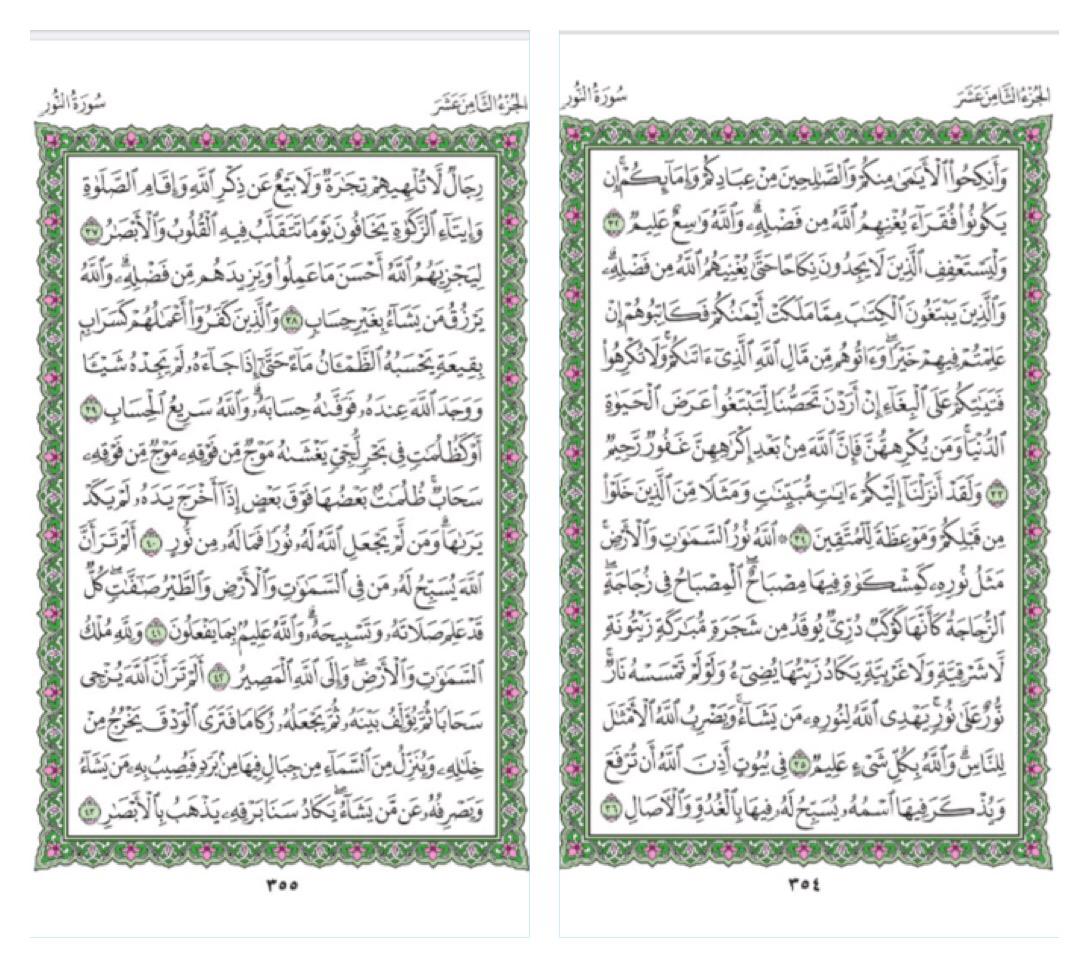 الجُزْءُ الثَّامِنَ عَشَرَ
سُورَةُ النُّورِ
وَأَنكِحُوا۟ ٱلْأَيَـٰمَىٰ مِنكُمْ وَٱلصَّـٰلِحِينَ مِنْ عِبَادِكُمْ وَإِمَآئِكُمْ ۚ إِن
يَكُونُوا۟ فُقَرَآءَ يُغْنِهِمُ ٱللَّهُ مِن فَضْلِهِۦ ۗ وَٱللَّهُ وَٰسِعٌ عَلِيمٌ ٣٢
وَلْيَسْتَعْفِفِ ٱلَّذِينَ لَا يَجِدُونَ نِكَاحًا حَتَّىٰ يُغْنِيَهُمُ ٱللَّهُ مِن فَضْلِهِۦ ۗ
وَٱلَّذِينَ يَبْتَغُونَ ٱلْكِتَـٰبَ مِمَّا مَلَكَتْ أَيْمَـٰنُكُمْ فَكَاتِبُوهُمْ إِنْ
عَلِمْتُمْ فِيهِمْ خَيْرًا ۖ وَءَاتُوهُم مِّن مَّالِ ٱللَّهِ ٱلَّذِىٓ ءَاتَىٰكُمْ ۚ وَلَا تُكْرِهُوا۟
فَتَيَـٰتِكُمْ عَلَى ٱلْبِغَآءِ إِنْ أَرَدْنَ تَحَصُّنًا لِّتَبْتَغُوا۟ عَرَضَ ٱلْحَيَوٰةِ
ٱلدُّنْيَا ۚ وَمَن يُكْرِههُّنَّ فَإِنَّ ٱللَّهَ مِنۢ بَعْدِ إِكْرَٰهِهِنَّ غَفُورٌ رَّحِيمٌ
٣٣ وَلَقَدْ أَنزَلْنَآ إِلَيْكُمْ ءَايَـٰتٍ مُّبَيِّنَـٰتٍ وَمَثَلًا مِّنَ ٱلَّذِينَ خَلَوْا۟
مِن قَبْلِكُمْ وَمَوْعِظَةً لِّلْمُتَّقِينَ ٣٤ ۞ ٱللَّهُ نُورُ ٱلسَّمَـٰوَٰتِ وَٱلْأَرْضِ ۚ
مَثَلُ نُورِهِۦ كَمِشْكَوٰةٍ فِيهَا مِصْبَاحٌ ۖ ٱلْمِصْبَاحُ فِى زُجَاجَةٍ ۖ
ٱلزُّجَاجَةُ كَأَنَّهَا كَوْكَبٌ دُرِّىٌّ يُوقَدُ مِن شَجَرَةٍ مُّبَـٰرَكَةٍ زَيْتُونَةٍ
لَّا شَرْقِيَّةٍ وَلَا غَرْبِيَّةٍ يَكَادُ زَيْتُهَا يُضِىٓءُ وَلَوْ لَمْ تَمْسَسْهُ نَارٌ ۚ
نُّورٌ عَلَىٰ نُورٍ ۗ يَهْدِى ٱللَّهُ لِنُورِهِۦ مَن يَشَآءُ ۚ وَيَضْرِبُ ٱللَّهُ ٱلْأَمْثَـٰلَ
لِلنَّاسِ ۗ وَٱللَّهُ بِكُلِّ شَىْءٍ عَلِيمٌ ٣٥ فِى بُيُوتٍ أَذِنَ ٱللَّهُ أَن تُرْفَعَ
وَيُذْكَرَ فِيهَا ٱسْمُهُۥ يُسَبِّحُ لَهُۥ فِيهَا بِٱلْغُدُوِّ وَٱلْـَٔاصَالِ ٣٦
٣٥٤
الجُزْءُ الثَّامِنَ عَشَرَ
سُورَةُ النُّورِ
رِجَالٌ لَّا تُلْهِيهِمْ تِجَـٰرَةٌ وَلَا بَيْعٌ عَن ذِكْرِ ٱللَّهِ وَإِقَامِ ٱلصَّلَوٰةِ
وَإِيتَآءِ ٱلزَّكَوٰةِ ۙ يَخَافُونَ يَوْمًا تَتَقَلَّبُ فِيهِ ٱلْقُلُوبُ وَٱلْأَبْصَـٰرُ ٣٧
لِيَجْزِيَهُمُ ٱللَّهُ أَحْسَنَ مَا عَمِلُوا۟ وَيَزِيدَهُم مِّن فَضْلِهِۦ ۗ وَٱللَّهُ
يَرْزُقُ مَن يَشَآءُ بِغَيْرِ حِسَابٍ ٣٨ وَٱلَّذِينَ كَفَرُوٓا۟ أَعْمَـٰلُهُمْ كَسَرَابٍۭ
بِقِيعَةٍ يَحْسَبُهُ ٱلظَّمْـَٔانُ مَآءً حَتَّىٰٓ إِذَا جَآءَهُۥ لَمْ يَجِدْهُ شَيْـًٔا
وَوَجَدَ ٱللَّهَ عِندَهُۥ فَوَفَّىٰهُ حِسَابَهُۥ ۗ وَٱللَّهُ سَرِيعُ ٱلْحِسَابِ ٣٩
أَوْ كَظُلُمَـٰتٍ فِى بَحْرٍ لُّجِّىٍّ يَغْشَىٰهُ مَوْجٌ مِّن فَوْقِهِۦ مَوْجٌ مِّن فَوْقِهِۦ
سَحَابٌ ۚ ظُلُمَـٰتٌۢ بَعْضُهَا فَوْقَ بَعْضٍ إِذَآ أَخْرَجَ يَدَهُۥ لَمْ يَكَدْ
يَرَىٰهَا ۗ وَمَن لَّمْ يَجْعَلِ ٱللَّهُ لَهُۥ نُورًا فَمَا لَهُۥ مِن نُّورٍ ٤٠ أَلَمْ تَرَ أَنَّ
ٱللَّهَ يُسَبِّحُ لَهُۥ مَن فِى ٱلسَّمَـٰوَٰتِ وَٱلْأَرْضِ وَٱلطَّيْرُ صَـٰٓفَّـٰتٍ ۖ كُلٌّ
قَدْ عَلِمَ صَلَاتَهُۥ وَتَسْبِيحَهُۥ ۗ وَٱللَّهُ عَلِيمٌۢ بِمَا يَفْعَلُونَ ٤١ وَلِلَّهِ مُلْكُ
ٱلسَّمَـٰوَٰتِ وَٱلْأَرْضِ ۖ وَإِلَى ٱللَّهِ ٱلْمَصِيرُ ٤٢ أَلَمْ تَرَ أَنَّ ٱللَّهَ يُزْجِى
سَحَابًا ثُمَّ يُؤَلِّفُ بَيْنَهُۥ ثُمَّ يَجْعَلُهُۥ رُكَامًا فَتَرَى ٱلْوَدْقَ يَخْرُجُ مِنْ
خِلَـٰلِهِۦ وَيُنَزِّلُ مِنَ ٱلسَّمَآءِ مِن جِبَالٍ فِيهَا مِنۢ بَرَدٍ فَيُصِيبُ بِهِۦ مَن يَشَآءُ
وَيَصْرِفُهُۥ عَن مَّن يَشَآءُ ۖ يَكَادُ سَنَا بَرْقِهِۦ يَذْهَبُ بِٱلْأَبْصَـٰرِ ٤٣
٣٥٥